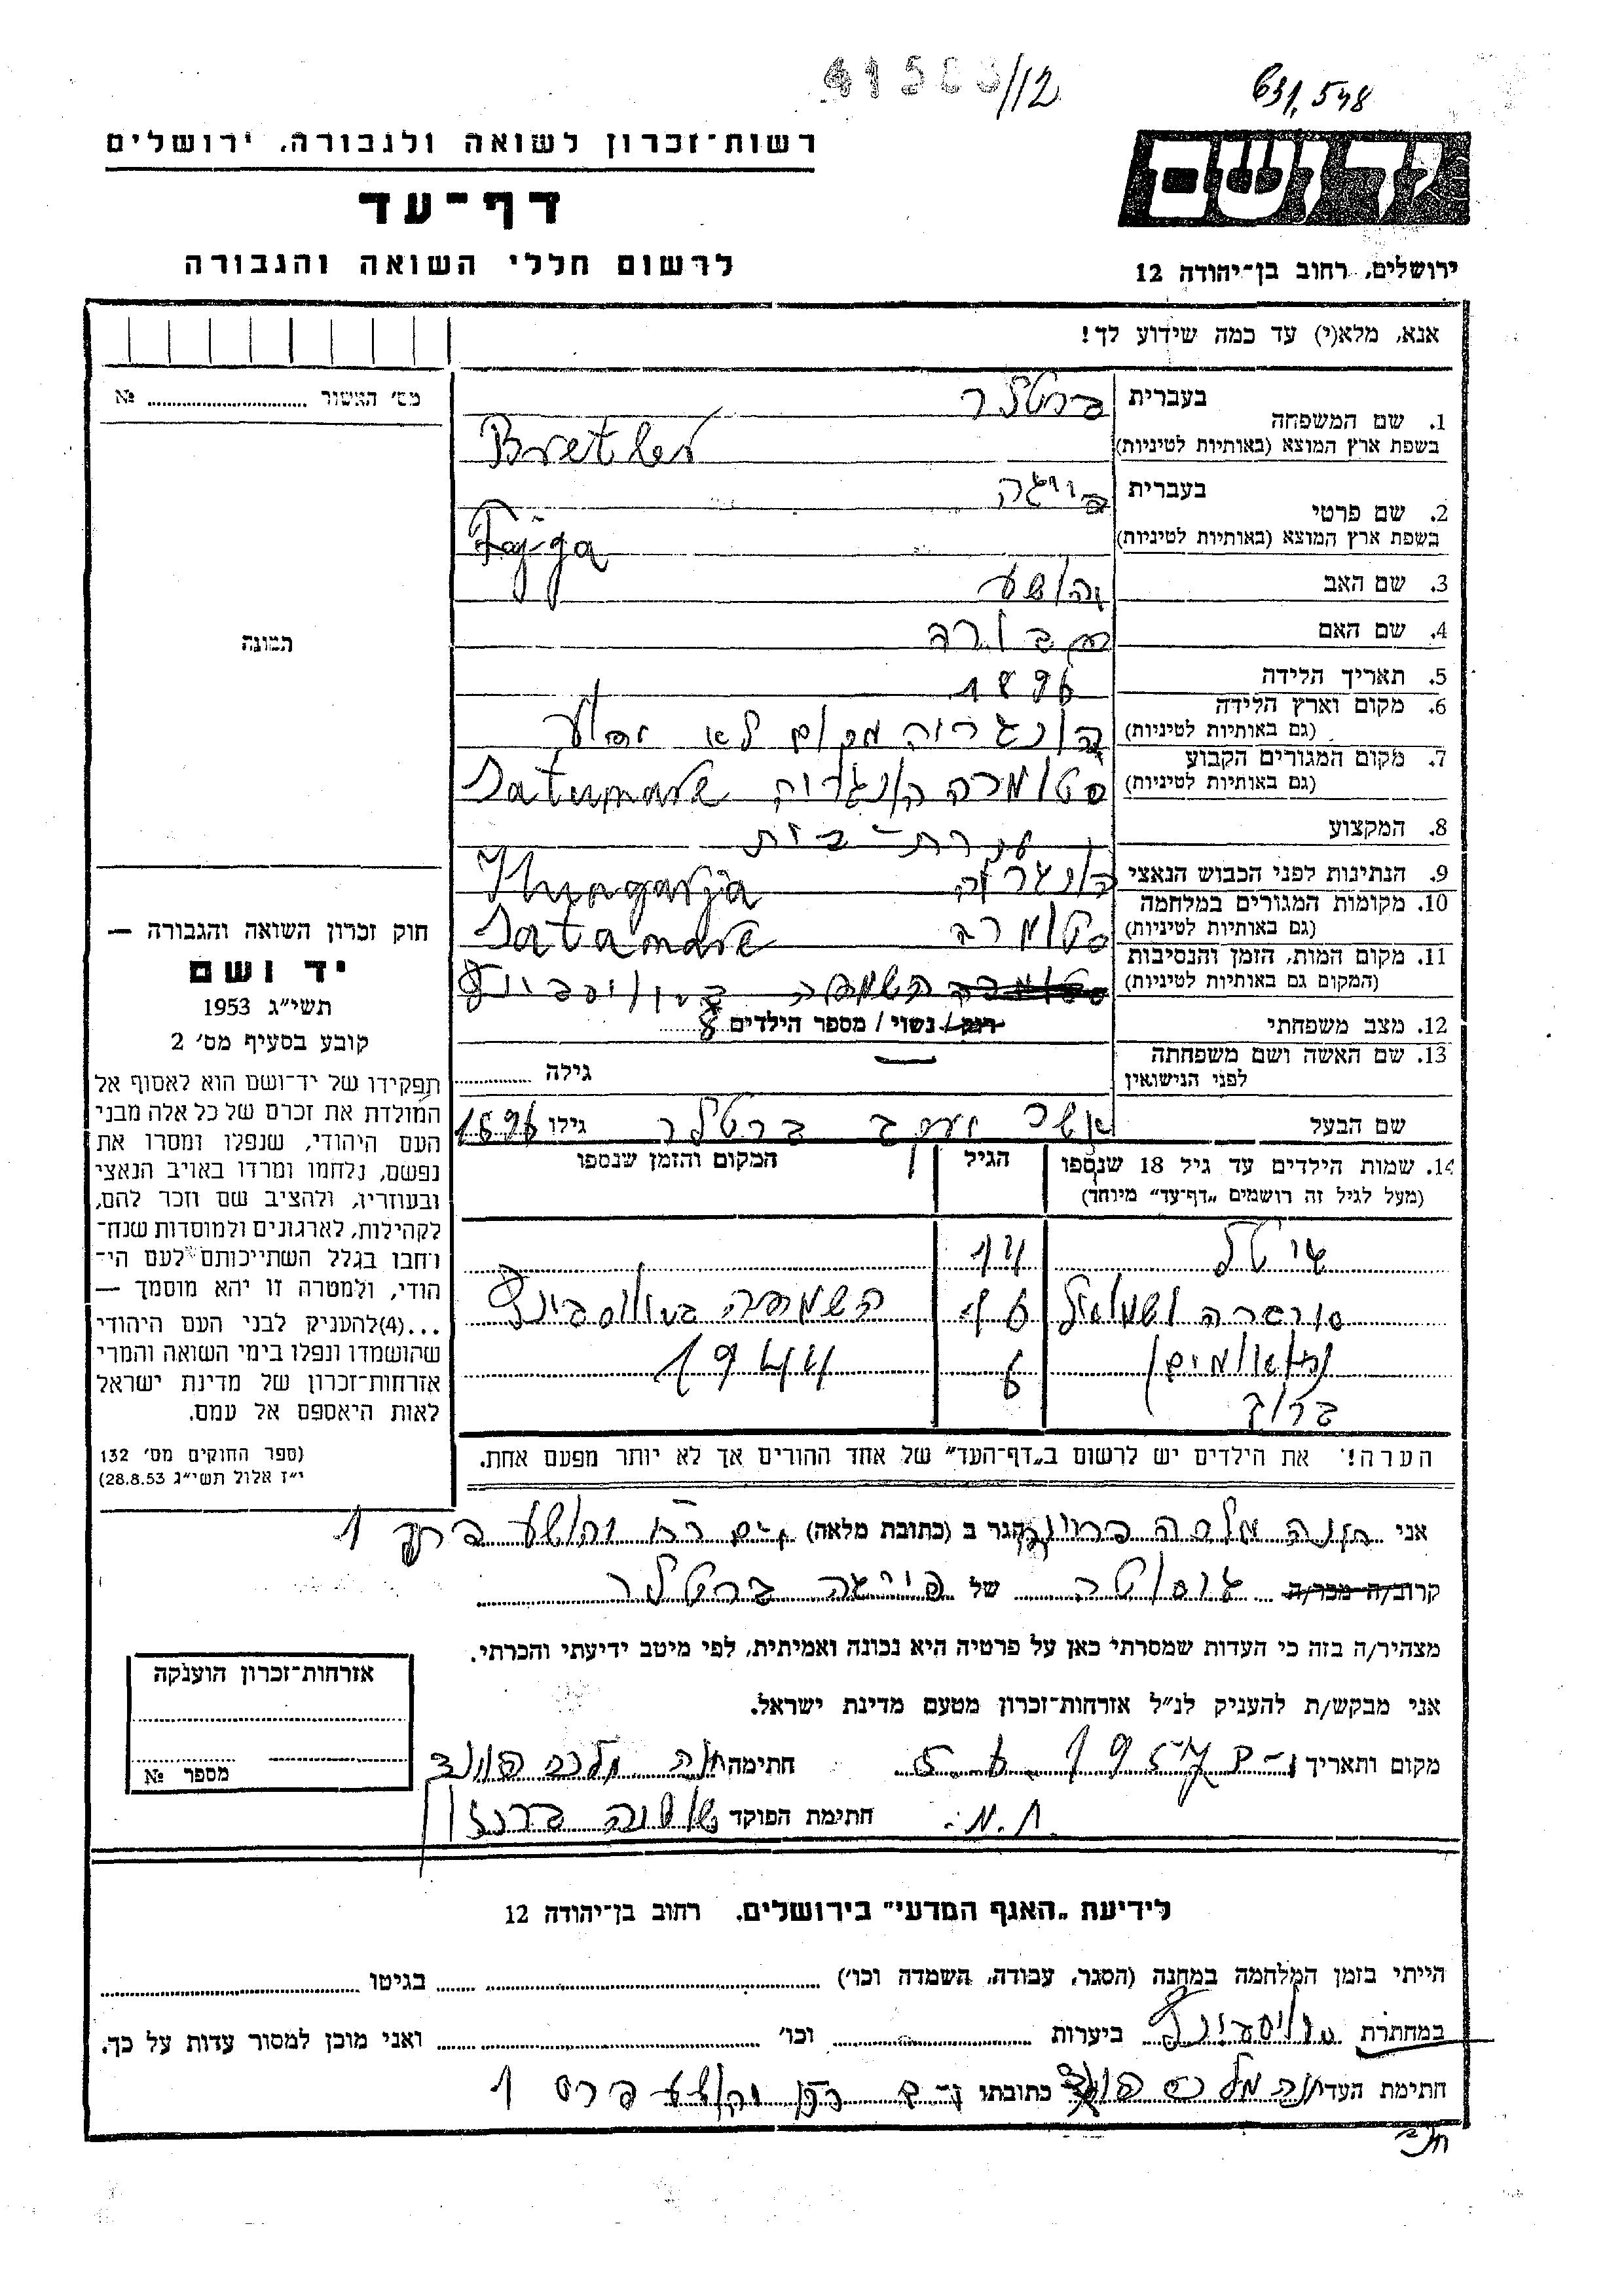 41563/12
631,548
רשות־זכרון לשואה ולגבורה, ירושלים
דף־עד
לרשום חללי השואה והגבורה
יד ושם
ירושלים, רחוב בן־יהודה 12
אנא, מלא(י) עד כמה שידוע לך!
מס׳ האשור ........ №
תמונה
1. שם המשפחה
בעברית ברטלר
בשפת ארץ המוצא (באותיות לטיניות) Bretler
2. שם פרטי
בעברית פייגה
בשפת ארץ המוצא (באותיות לטיניות) Fajga
3. שם האב יהושע
4. שם האם דבורה
5. תאריך הלידה 1896
6. מקום וארץ הלידה
(גם באותיות לטיניות) הונגריה מקום לא ידוע
7. מקום המגורים הקבוע
(גם באותיות לטיניות) סטומרה הונגריה Satumare
8. המקצוע עקרת-בית
9. הנתינות לפני הכבוש הנאצי הונגריה Hungarja
10. מקומות המגורים במלחמה
(גם באותיות לטיניות) סטומרה Satamare
11. מקום המות, הזמן והנסיבות
(המקום גם באותיות לטיניות) סטומרה השמדה
12. מצב משפחתי רווק / נשוי / מספר הילדים 8
13. שם האשה ושם משפחתה
לפני הנישואין
גילה
שם הבעל אשר יעקב ברטלר גילו 1896
14. שמות הילדים עד גיל 18 שנספו
(מעל לגיל זה רושמים „דף־עד״ מיוחד)
הגיל
המקום והזמן שנספו
14
שרה ושמואל 16 השמדה
(תאומים) 6 1944
ברוך
הערה! את הילדים יש לרשום ב„דף־העד״ של אחד ההורים אך לא יותר מפעם אחת.
חוק זכרון השואה והגבורה —
יד ושם
תשי״ג 1953
קובע בסעיף מס׳ 2
תפקידו של יד־ושם הוא לאסוף אל
המולדת את זכרם של כל אלה מבני
העם היהודי, שנפלו ומסרו את
נפשם, נלחמו ומרדו באויב הנאצי
ובעוזריו, ולהציב שם וזכר להם,
לקהילות, לארגונים ולמוסדות שנח־
רבו בגלל השתייכותם לעם הי־
הודי, ולמטרה זו יהא מוסמך —
...(4)להעניק לבני העם היהודי
שהושמדו ונפלו בימי השואה והמרי
אזרחות־זכרון של מדינת ישראל
לאות היאספם אל עמם.
(ספר החוקים מס׳ 132
י״ז אלול תשי״ג 28.8.53)
אני חנה מלכה הגר ב (כתובת מלאה) יהושע 1
קרוב/ה מכר/ה של פייגה ברטלר
מצהיר/ה בזה כי העדות שמסרתי כאן על פרטיה היא נכונה ואמיתית, לפי מיטב ידיעתי והכרתי.
אני מבקש/ת להעניק לנ״ל אזרחות־זכרון מטעם מדינת ישראל.
מקום ותאריך 5.6.1957 חתימה חנה מלכה
חתימת הפוקד
אזרחות־זכרון הוענקה
מספר №
לידיעת „האגף המדעי״ בירושלים, רחוב בן־יהודה 12
הייתי בזמן המלחמה במחנה (הסגר, עבודה, השמדה וכו׳) ........ בגיטו ........
במחתרת ........ ביערות ........ וכו׳ ........ ואני מוכן למסור עדות על כך.
חתימת העד חנה מלכה כתובתו יהושע 1